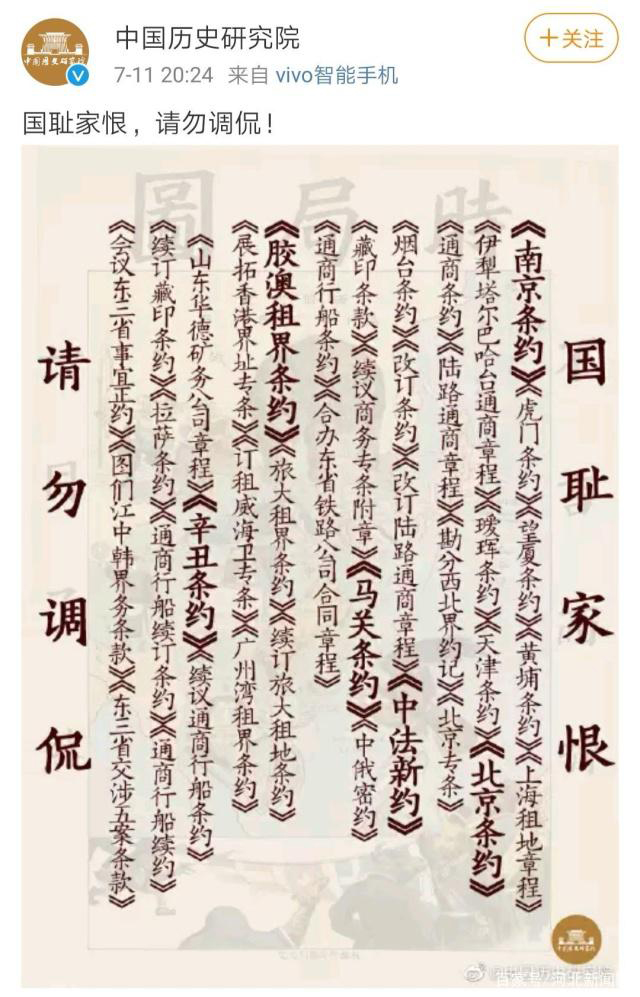 中国历史研究院
+关注
7-11 20:24 来自 vivo智能手机
国耻家恨，请勿调侃！
時局圖
国耻家恨
《南京条约》《虎门条约》《望厦条约》《黄埔条约》《上海租地章程》
《伊犁塔尔巴哈台通商章程》《瑷珲条约》《天津条约》《北京条约》
《通商条约》《陆路通商章程》《勘分西北界约记》《北京专条》
《烟台条约》《改订条约》《改订陆路通商章程》《中法新约》
《藏印条款》《续议商务专条附章》《马关条约》《中俄密约》
《通商行船条约》《合办东省铁路公司合同章程》
《胶澳租界条约》《旅大租界条约》《续订旅大租地条约》
《展拓香港界址专条》《订租威海卫专条》《广州湾租界条约》
《山东华德矿务公司章程》《辛丑条约》《续议通商行船条约》
《续订藏印条约》《拉萨条约》《通商行船续订条约》《通商行船续约》
《会议东三省事宜正约》《图们江中韩界务条款》《东三省交涉五案条款》
请勿调侃
百家号/河北新闻